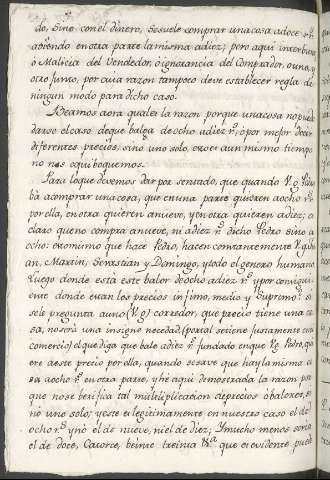 do, sino con el dinero, se suele comprar una cosa a doce rs.
aviendo en otra parte la misma a diez; pero aqui interbiene
o Malicia del Vendedor, o ignorancia del Comprador, o uno, y
otro junto, por cuia razon tampoco deve establecer regla de
ningun modo para dicho caso.
Veamos aora qual es la razon porque una cosa no pueda
darse el caso de que balga de ocho a diez rs. o por mejor decir
diferentes precios, sino uno solo, en aun mismo tiempo
no nos equiboquemos.
Para lo que devemos dar por sentado, que quando V.g. Pedro
bá a comprar una cosa, que en una parte quieren a ocho rs.
por ella, en otra quieren a nueve, y en otra quieren a diez; es
claro que no compra a nueve, ni a diez rs. dicho Pedro sino a
ocho: Lo mismo que hace Pedro, hacen constantemente V.g. Ju
an, Martin, Sevastian y Domingo, y todo el genero humano
Luego donde está este balor de ocho a diez rs. y por consigui-
ente donde estan los precios infimo, medio y Supremo? si
se le pregunta a uno (V.g.) corredor, que precio tiene una co
sa, no será una insigne necedad, (por tal se tiene justamente en el
comercio) el que diga que bale a diez rs. fundado en que V.g. Pedro, qui
ere a este precio por ella, quando se save que hay la misma co
sa a ocho rs. en otra parte, y hé aqui demostrada la razon por
que no se berifica tal multiplicacion de precios ó balores, si
nó uno solo; y este es legitimamente en nuestro caso el de
ocho rs. y nó el de nueve, ni el de diez; Y mucho menos será
el de doce, Catorce, beinte treinta &a. que es evidente puede